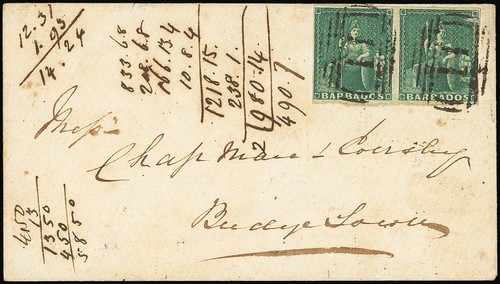 12.31
1.93
14.24
833.6.8
166.13.4
10.8.4
1218.15.
238.1.
2 980.14
490.7
BARBADOS
BARBADOS
Mess
Chapman &
Bridge Town
450
13
1350
450
5850